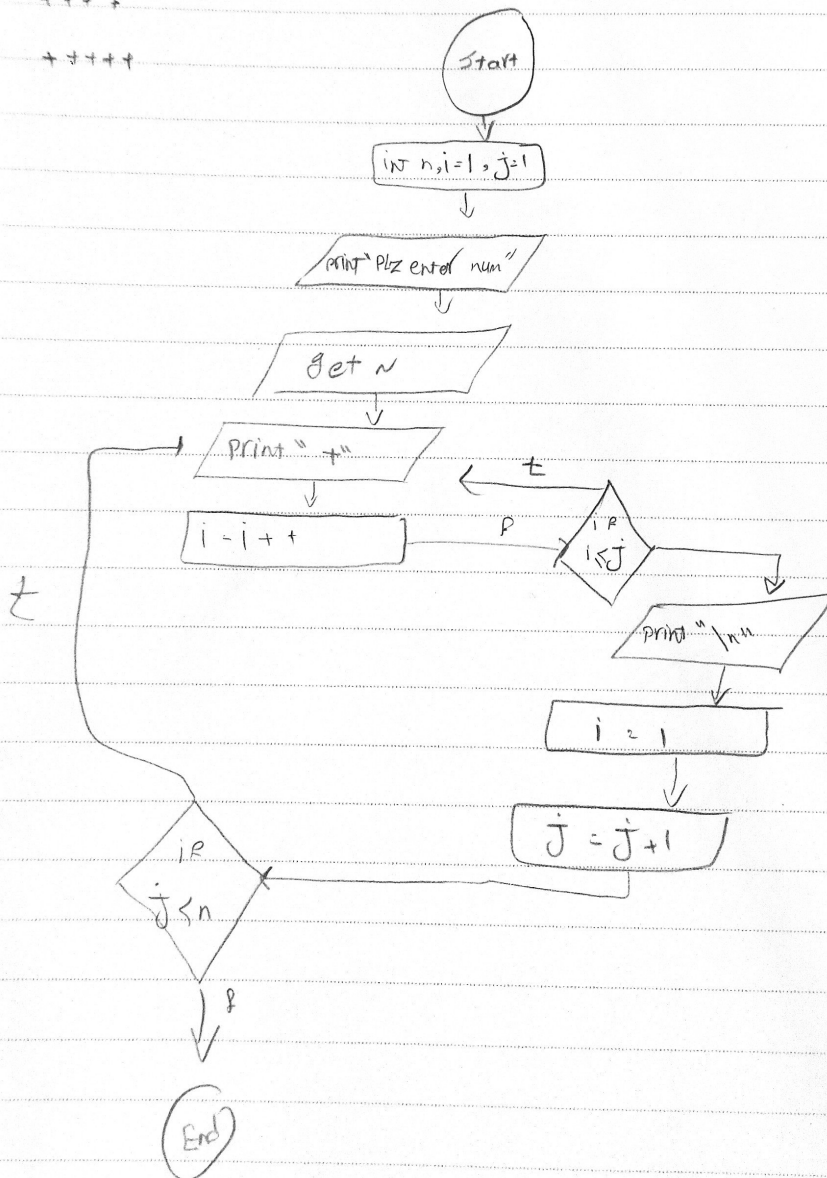 + + + +
+ + + + +
Start
int n,i=1, j=1
print "Plz enter num"
get N
print "+"
t
i = i + +
f
if
i≤j
print "\n"
t
i = 1
j = j+1
if
j<n
f
End